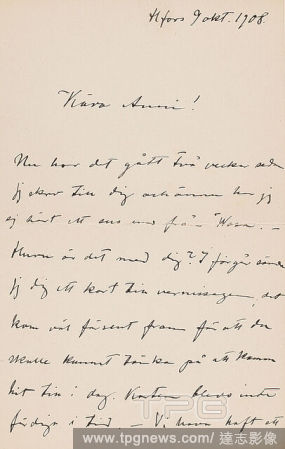 Hfors 9 okt. 1908.
Kära Anni!
Nu har det gått två veckor sedan
jag skrev till dig och ännu har jag
ej hört ett ens ord från Wasa. –
Hurru är det med dig? I förgår sände
jag dig ett kort till vernissagen, det
kom väl för sent fram för att du
skulle kunnat tänka på att komma
hit till i dag. Korten blevo inte
färdiga i tid – Vi hava haft ett
TPG
www.tpgnews.com/達志影像